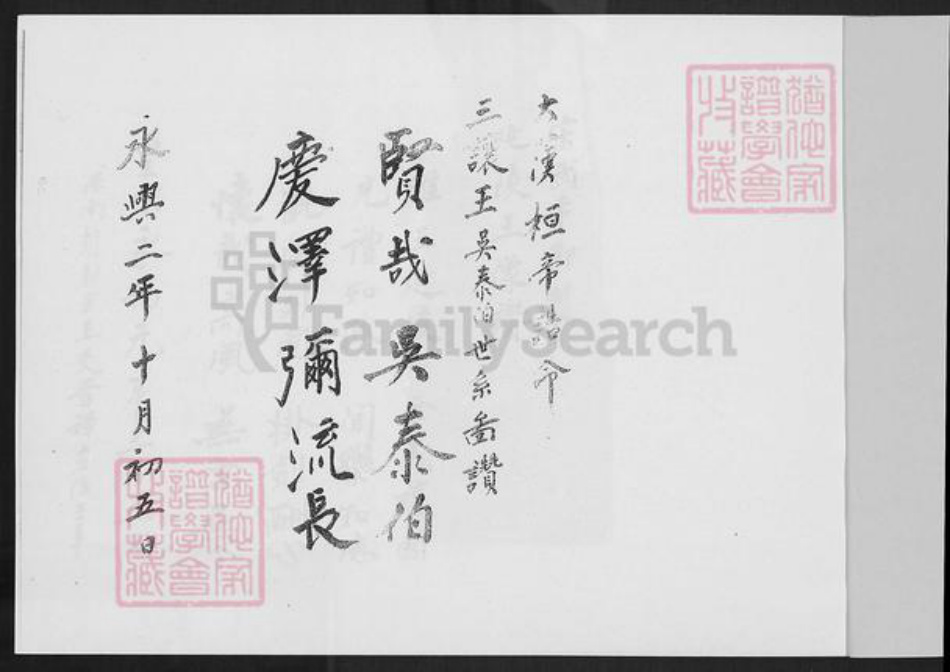 大漢桓帝誥命
三讓王吳泰伯世系圖讚
賢哉吳泰伯
慶澤彌流長
永興二年十月初五日
譜學會
收藏
譜學會
收藏
FamilySearch